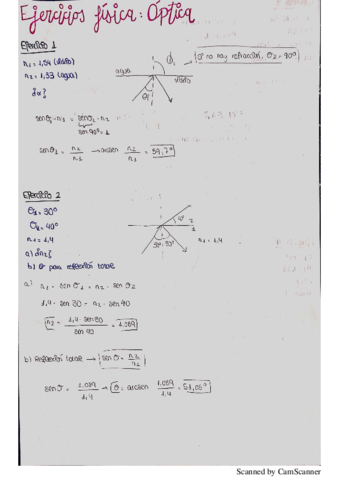 Ejercicios física: Óptica
Ejercicio 1
n₁ = 1,54 (vidrio)
n₂ = 1,33 (agua)
Si no hay refracción, θ₂ = 90º
agua
vidrio
senθ₁ · n₁ = senθ₂ · n₂
sen90º = 1
senθ₁ = n₂/n₁ → arcsen n₂/n₁ = 59,7º
Ejercicio 2
θ₁ = 30º
θ₂ = 40º
n₁ = 1,4
a) ¿n₂?
b) θ para reflexión total
n₁ = 1,4
a) n₁ · sen θ₁ = n₂ · sen θ₂
1,4 · sen 30 = n₂ · sen 40
n₂ = 1,4 · sen30 / sen 40 = 1,089
b) Reflexión total → sen θ = n₂/n₁
senθ = 1,089/1,4 → θ = arcsen 1,089/1,4 = 51,06º
Scanned by CamScanner